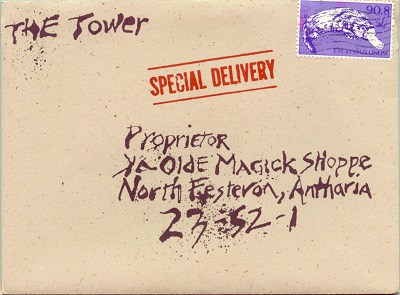 THE TOWER
90.8
SPECIAL DELIVERY
PROPRIETOR
YE OLDE MAGICK SHOPPE
NORTH FESTERON, ANTHARIA
23-S2-1